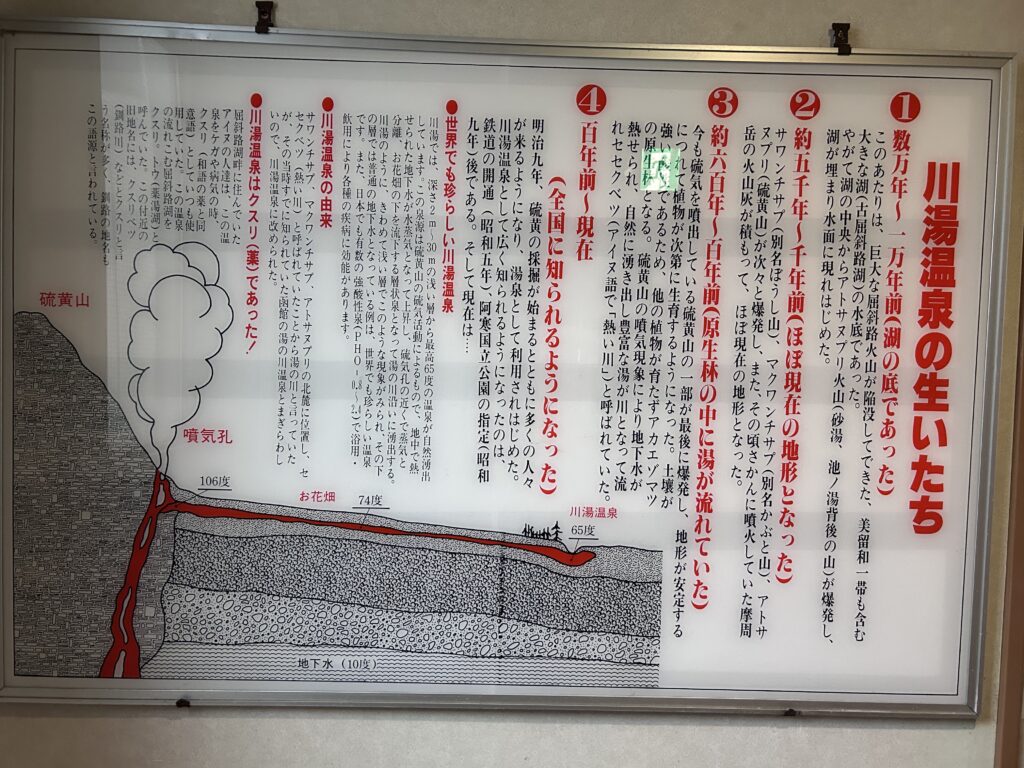 川湯温泉の生いたち
❶数万年〜一万年前(湖の底であった)
このあたりは、巨大な屈斜路火山が陥没してできた、美留和一帯も含む
大きな湖(古屈斜路湖)の水底であった。
やがて湖の中央からアトサヌプリ火山(砂湯、池ノ湯背後の山)が爆発し、
湖が埋まり水面に現れはじめた。
❷約五千年〜千年前(ほぼ現在の地形となった)
サワンチサプ(別名ぼうし山)、マクワンチサプ(別名かぶと山)、アトサ
ヌプリ(硫黄山)が次々と爆発し、また、その頃さかんに噴火していた摩周
岳の火山灰が積もって、ほぼ現在の地形となった。
❸約六百年〜百年前(原生林の中に湯が流れていた)
今も硫気を噴出している硫黄山の一部が最後に爆発し、地形が安定する
につれて植物が次第に生育するようになった。土壌が
強 であるため、他の植物が育たずアカエゾマツ
の原生林となる。硫黄山の噴気現象により地下水が
熱せられ、自然に湧き出し豊富な湯が川となって流
れセセクベツ(アイヌ語で「熱い川」)と呼ばれていた。
❹百年前〜現在
(全国に知られるようになった)
明治九年、硫黄の採掘が始まるとともに多くの人々
が来るようになり、湯泉として利用されはじめた。
川湯温泉として広く知られるようになったのは、
鉄道の開通(昭和五年)阿寒国立公園の指定(昭和
九年)後である。そして現在は…
●世界でも珍らしい川湯温泉
川湯では、深さ9m〜30mの浅い層から最高65度の温泉が自然湧出
しています。この泉源は硫黄山の硫気活動によるもので、地中で熱
せられた地下水が水蒸気となって上昇し、硫気孔の近くで蒸気と
分離、お花畑の下を流する層状泉となって湯の川沿いに湧出する。
川湯のように、きわめて浅い層でこのような現象がみられ、その下
の層では普通の地下水となっている例は、世界でも珍らしい温泉
です。また、日本でも有数の強酸性泉(PHO-0.8〜2)で浴用・
飲用により各種の疾病に効能があります。
●川湯温泉の由来
サワンチサプ、マクワンチサプ、アトサヌプリの北麓に位置し、セ
セクベツ(熱い川)と呼ばれていたことから湯の川と言っていた
が、その当時すでに知られていた函館の湯の川温泉とまぎらわし
いので、川湯温泉に改められた。
●川湯温泉はクスリ(薬)であった!
屈斜路湖畔に住んでいた
アイヌの人達は、この温
泉をケガや病気の時、
クスリ(和語の薬と同
意語)としていつも使
用していた。この温泉
の流れこむ屈斜路湖を
クスリ・トウ(薬湯湖)と
呼んでいた。この付近の
旧地名には、クスリベツ
(釧路川)などとクスリと言
う名称が多く、釧路の地名も
この語源と言われている。
硫黄山
噴気孔
106度
お花畑
74度
川湯温泉
65度
地下水(10度)